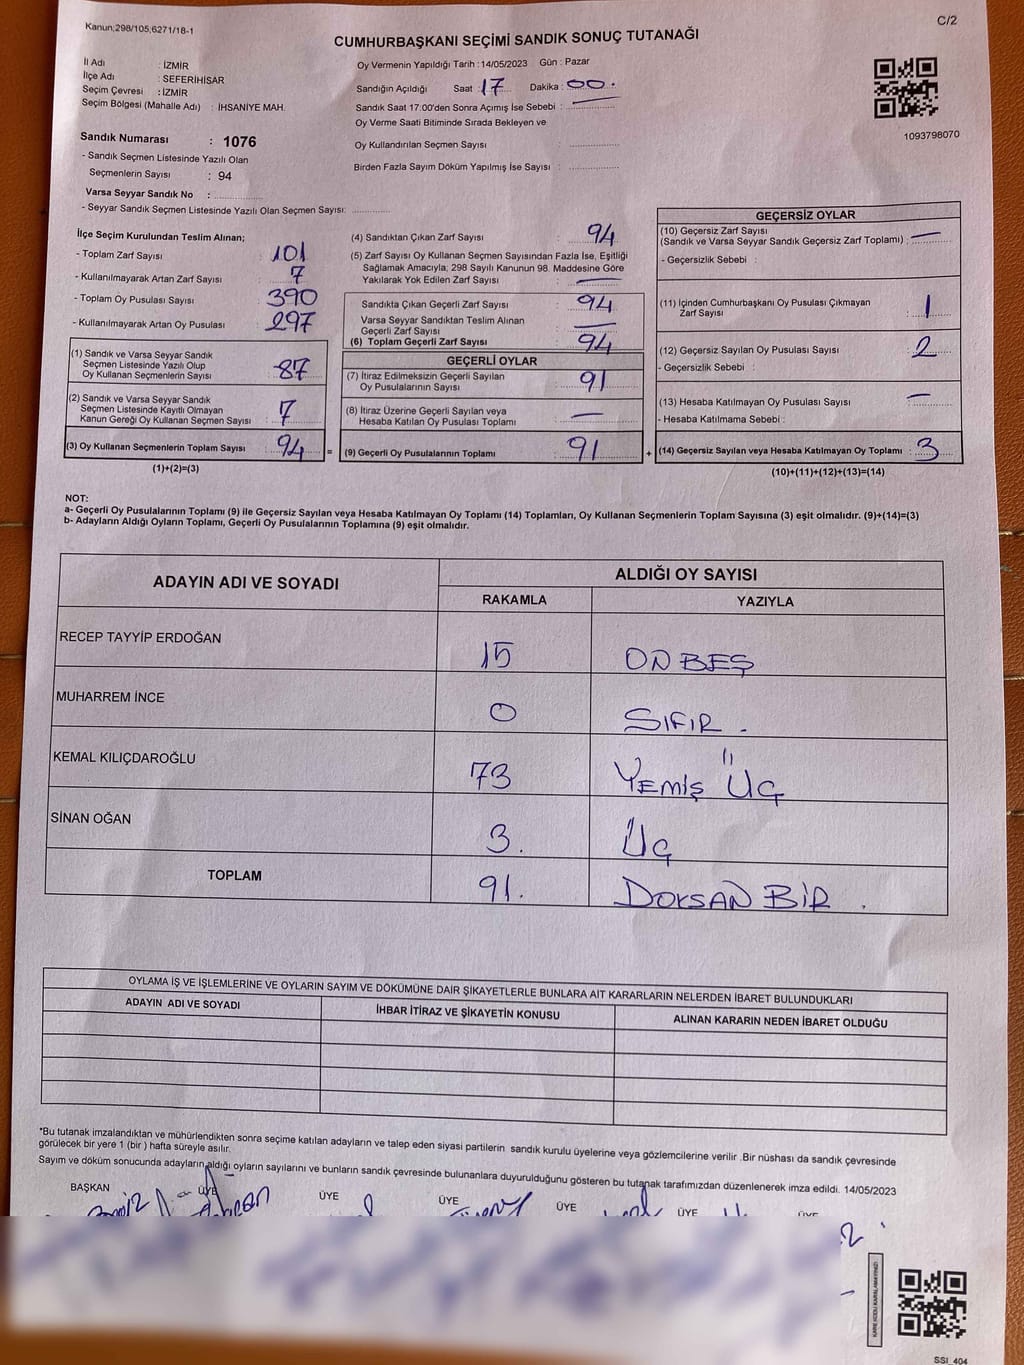 Kanun;298/105,6271/18-1
C/2
CUMHURBAŞKANI SEÇİMİ SANDIK SONUÇ TUTANAĞI
İl Adı : İZMİR
İlçe Adı : SEFERİHİSAR
Seçim Çevresi : İZMİR
Seçim Bölgesi (Mahalle Adı) : İHSANİYE MAH.
Oy Vermenin Yapıldığı Tarih :14/05/2023 Gün : Pazar
Sandığın Açıldığı Saat : 17 Dakika : 00.
Sandık Saat 17:00'den Sonra Açımış İse Sebebi : —
Oy Verme Saati Bitiminde Sırada Bekleyen ve
Oy Kullandırılan Seçmen Sayısı :
Birden Fazla Sayım Döküm Yapılmış İse Sayısı :
1093798070
Sandık Numarası : 1076
- Sandık Seçmen Listesinde Yazılı Olan
Seçmenlerin Sayısı : 94
Varsa Seyyar Sandık No :
- Seyyar Sandık Seçmen Listesinde Yazılı Olan Seçmen Sayısı:
İlçe Seçim Kurulundan Teslim Alınan;
- Toplam Zarf Sayısı : 101
- Kullanılmayarak Artan Zarf Sayısı : 7
- Toplam Oy Pusulası Sayısı : 390
- Kullanılmayarak Artan Oy Pusulası : 297
(1) Sandık ve Varsa Seyyar Sandık
Seçmen Listesinde Yazılı Olup
Oy Kullanan Seçmenlerin Sayısı : 87
(2) Sandık ve Varsa Seyyar Sandık
Seçmen Listesinde Kayıtlı Olmayan
Kanun Gereği Oy Kullanan Seçmen Sayısı : 7
(3) Oy Kullanan Seçmenlerin Toplam Sayısı : 94 =
(1)+(2)=(3)
(4) Sandıktan Çıkan Zarf Sayısı : 94
(5) Zarf Sayısı Oy Kullanan Seçmen Sayısından Fazla İse, Eşitliği
Sağlamak Amacıyla; 298 Sayılı Kanunun 98. Maddesine Göre
Yakılarak Yok Edilen Zarf Sayısı : —
Sandıkta Çıkan Geçerli Zarf Sayısı : 94
Varsa Seyyar Sandıktan Teslim Alınan
Geçerli Zarf Sayısı : —
(6) Toplam Geçerli Zarf Sayısı : 94
GEÇERLİ OYLAR
(7) İtiraz Edilmeksizin Geçerli Sayılan
Oy Pusulalarının Sayısı : 91
(8) İtiraz Üzerine Geçerli Sayılan veya
Hesaba Katılan Oy Pusulası Toplamı : —
(9) Geçerli Oy Pusulalarının Toplamı : 91 +
GEÇERSİZ OYLAR
(10) Geçersiz Zarf Sayısı
(Sandık ve Varsa Seyyar Sandık Geçersiz Zarf Toplamı) : —
- Geçersizlik Sebebi :
(11) İçinden Cumhurbaşkanı Oy Pusulası Çıkmayan
Zarf Sayısı : 1
(12) Geçersiz Sayılan Oy Pusulası Sayısı : 2
- Geçersizlik Sebebi :
(13) Hesaba Katılmayan Oy Pusulası Sayısı : —
- Hesaba Katılmama Sebebi :
(14) Geçersiz Sayılan veya Hesaba Katılmayan Oy Toplamı : 3
(10)+(11)+(12)+(13)=(14)
NOT:
a- Geçerli Oy Pusulalarının Toplamı (9) ile Geçersiz Sayılan veya Hesaba Katılmayan Oy Toplamı (14) Toplamları, Oy Kullanan Seçmenlerin Toplam Sayısına (3) eşit olmalıdır. (9)+(14)=(3)
b- Adayların Aldığı Oyların Toplamı, Geçerli Oy Pusulalarının Toplamına (9) eşit olmalıdır.
ADAYIN ADI VE SOYADI
ALDIĞI OY SAYISI
RAKAMLA YAZIYLA
RECEP TAYYİP ERDOĞAN 15 ON BEŞ
MUHARREM İNCE 0 SIFIR .
KEMAL KILIÇDAROĞLU 73 YEMİŞ ÜÇ
SİNAN OĞAN 3. ÜÇ
TOPLAM 91. DOKSAN BİR .
OYLAMA İŞ VE İŞLEMLERİNE VE OYLARIN SAYIM VE DÖKÜMÜNE DAİR ŞİKAYETLERLE BUNLARA AİT KARARLARIN NELERDEN İBARET BULUNDUKLARI
ADAYIN ADI VE SOYADI İHBAR İTİRAZ VE ŞİKAYETİN KONUSU ALINAN KARARIN NEDEN İBARET OLDUĞU
*Bu tutanak imzalandıktan ve mühürlendikten sonra seçime katılan adayların ve talep eden siyasi partilerin sandık kurulu üyelerine veya gözlemcilerine verilir .Bir nüshası da sandık çevresinde
görülecek bir yere 1 (bir ) hafta süreyle asılır.
Sayım ve döküm sonucunda adayların aldığı oyların sayılarını ve bunların sandık çevresinde bulunanlara duyurulduğunu gösteren bu tutanak tarafımızdan düzenlenerek imza edildi. 14/05/2023
BAŞKAN ÜYE ÜYE ÜYE ÜYE ÜYE ÜYE
KARE KODU KARALAMAYINIZ!
SSI_404